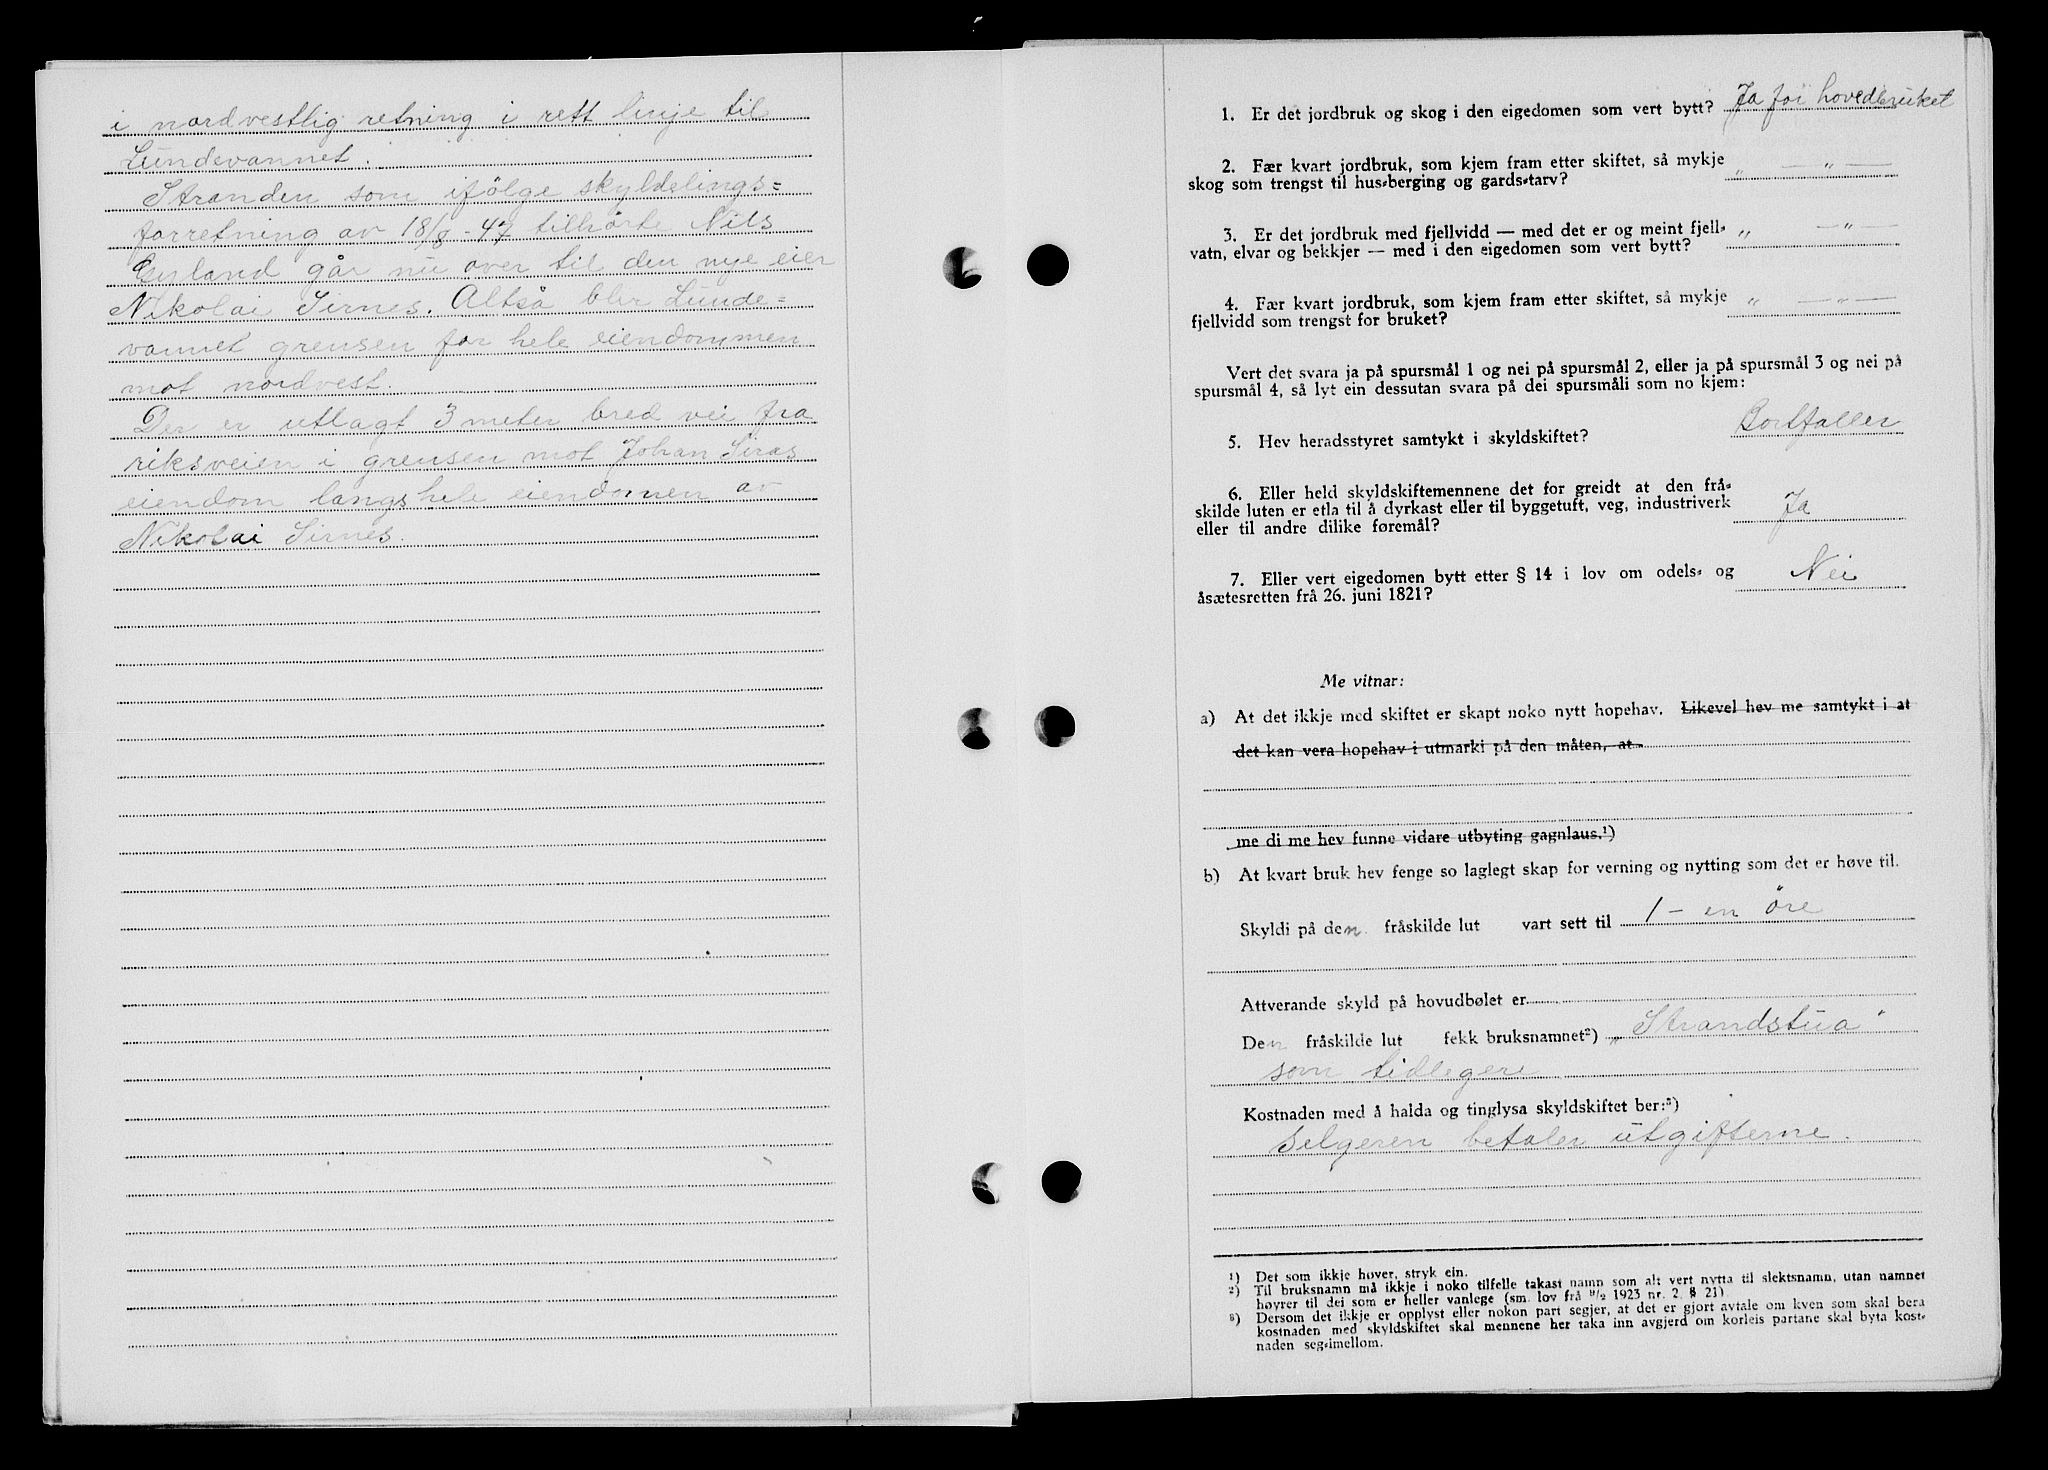 i nordvestlig retning i rett linje til
Lundevannet.
Stranden som ifølge skyldelings=
forretning av 18/8-47 tilhørte Nils
Gyland går nu over til den nye eier
Nikolai Sirnes. Altså blir Lunde=
vannet grensen for hele eiendommen
mot nordvest.
Der er utlagt 3 meter bred vei fra
riksveien i grensen mot Johan Siras
eiendom langs hele eiendomen av
Nikolai Sirnes.
1. Er det jordbruk og skog i den eigedomen som vert bytt? Ja for hovedbruket
2. Fær kvart jordbruk, som kjem fram etter skiftet, så mykje
skog som trengst til hus-berging og gards-tarv? „ — „ —
3. Er det jordbruk med fjellvidd — med det er og meint fjell-
vatn, elvar og bekkjer — med i den eigedomen som vert bytt? „ — „ —
4. Fær kvart jordbruk, som kjem fram etter skiftet, så mykje
fjellvidd som trengst for bruket? „ — „ —
Vert det svara ja på spursmål 1 og nei på spursmål 2, eller ja på spursmål 3 og nei på
spursmål 4, så lyt ein dessutan svara på dei spursmåli som no kjem:
5. Hev heradsstyret samtykt i skyldskiftet? Bortfaller
6. Eller held skyldskiftemennene det for greidt at den frå-
skilde luten er etla til å dyrkast eller til byggetuft, veg, industriverk
eller til andre dilike føremål? Ja
7. Eller vert eigedomen bytt etter § 14 i lov om odels- og
åsætesretten frå 26. juni 1821? Nei
Me vitnar:
a) At det ikkje med skiftet er skapt noko nytt hopehav. Likevel hev me samtykt i at
det kan vera hopehav i utmarki på den måten, at
me di me hev funne vidare utbyting gagnlaus.¹)
b) At kvart bruk hev fenge so laglegt skap for verning og nytting som det er høve til.
Skyldi på den fråskilde lut vart sett til 1 - en øre
Attverande skyld på hovudbølet er
Den fråskilde lut fekk bruksnamnet²) „Strandstua"
som tidlegere
Kostnaden med å halda og tinglysa skyldskiftet ber:³)
Selgeren betaler utgifterne.
¹) Det som ikkje høver, stryk ein.
²) Til bruksnamn må ikkje i noko tilfelle takast namn som alt vert nytta til slektsnamn, utan namnet
høyrer til dei som er heller vanlege (sm. lov frå 9/2 1923 nr. 2. § 21)
³) Dersom det ikkje er opplyst eller nokon part segjer, at det er gjort avtale om kven som skal bera
kostnaden med skyldskiftet skal mennene her taka inn avgjerd om korleis partane skal byta kost-
naden seg-imellom.